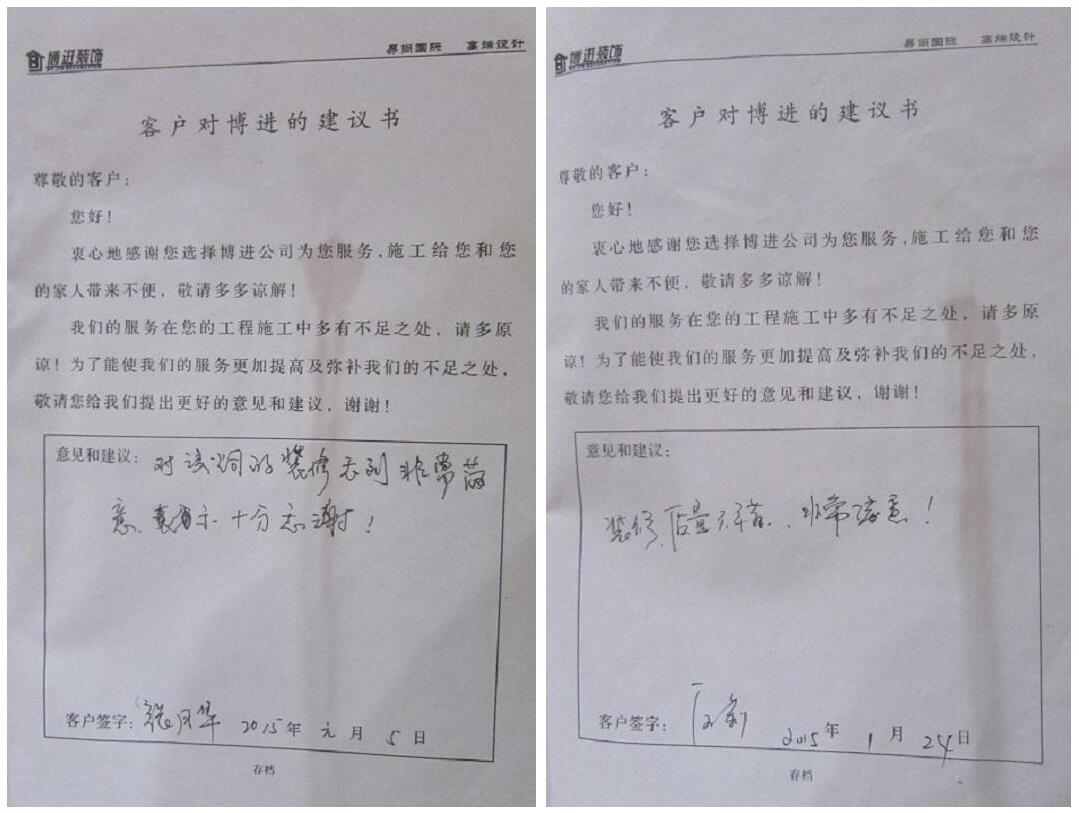 博进装饰
易尚国际 高端设计
客户对博进的建议书
尊敬的客户：
您好！
衷心地感谢您选择博进公司为您服务，施工给您和您
的家人带来不便，敬请多多谅解！
我们的服务在您的工程施工中多有不足之处，请多原
谅！为了能使我们的服务更加提高及弥补我们的不足之处，
敬请您给我们提出更好的意见和建议，谢谢！
意见和建议：对该公司的装修感到非常满
意，表示十分感谢！
客户签字：张月华 2015年 元月 5日
存档
博进装饰
易尚国际 高端设计
客户对博进的建议书
尊敬的客户：
您好！
衷心地感谢您选择博进公司为您服务，施工给您和您
的家人带来不便，敬请多多谅解！
我们的服务在您的工程施工中多有不足之处，请多原
谅！为了能使我们的服务更加提高及弥补我们的不足之处，
敬请您给我们提出更好的意见和建议，谢谢！
意见和建议：
装修质量 非常满意！
客户签字： 2015年 1月 24日
存档